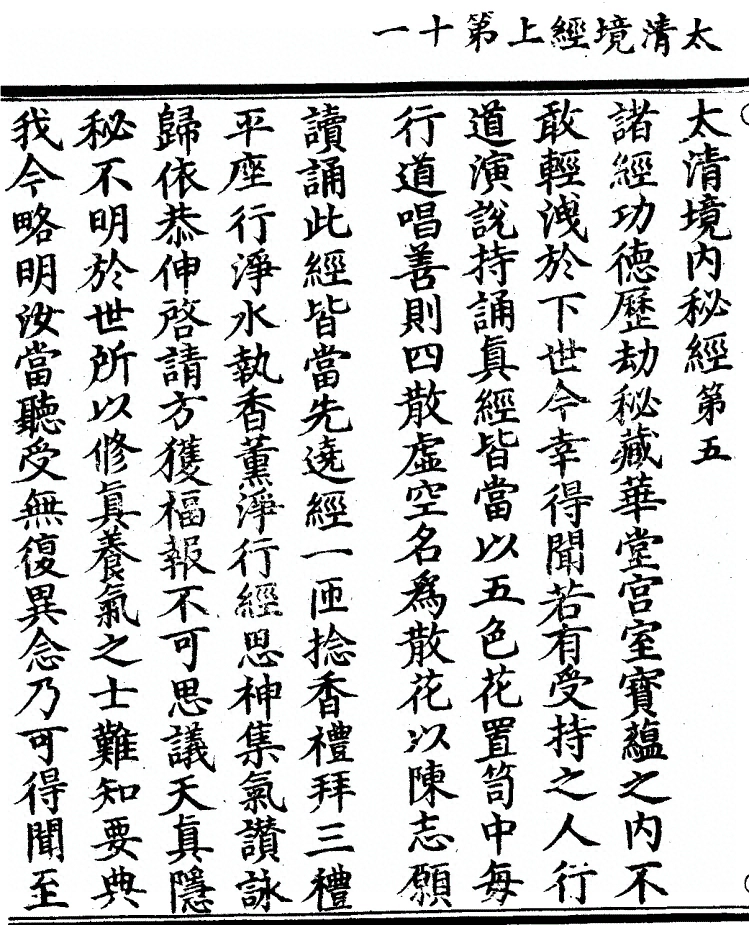 太清境經上第十一
太清境内秘經第五
諸經功德歷劫秘藏華堂宫室寳蘊之内不
敢輕洩於下世今幸得聞若有受持之人行
道演說持誦真經皆當以五色花置笥中每
行道唱善則四散虛空名爲散花以陳志願
讀誦此經皆當先遶經一匝捻香禮拜三禮
平座行淨水執香薰淨行經思神集氣讃詠
歸依恭伸啓請方獲福報不可思議天真隱
秘不明於世所以修真養氣之士難知要典
我今略明汝當聽受無復異念乃可得聞至